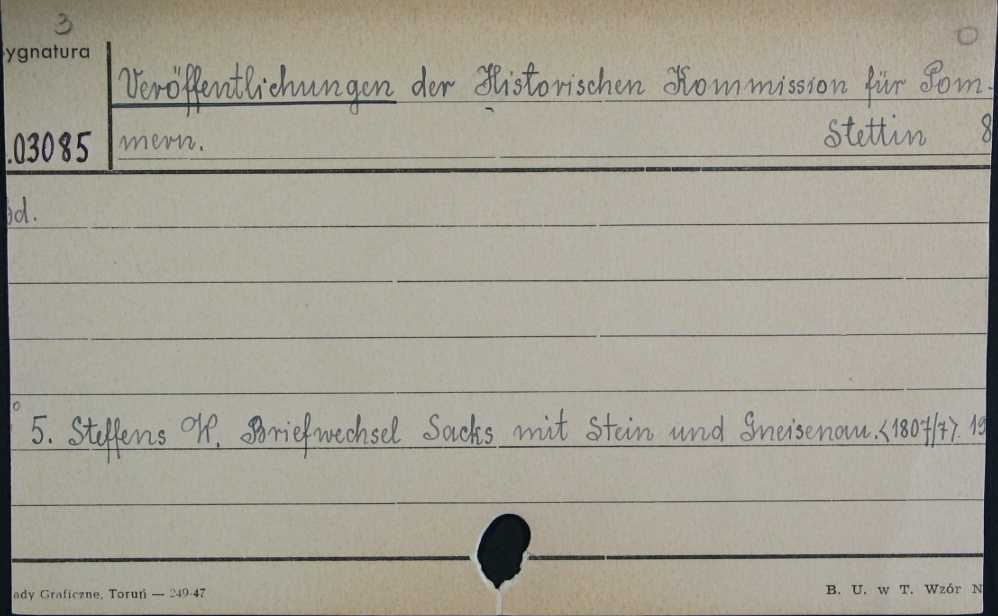 3
ygnatura
Veröffentlichungen der Historischen Kommission für Pom-
.03085 mern. Stettin 8
5. Steffens W. Briefwechsel Sacks mit Stein und Gneisenau. <1807/7> 19
ady Graficzne, Toruń — 249-47 B. U. w T. Wzór N